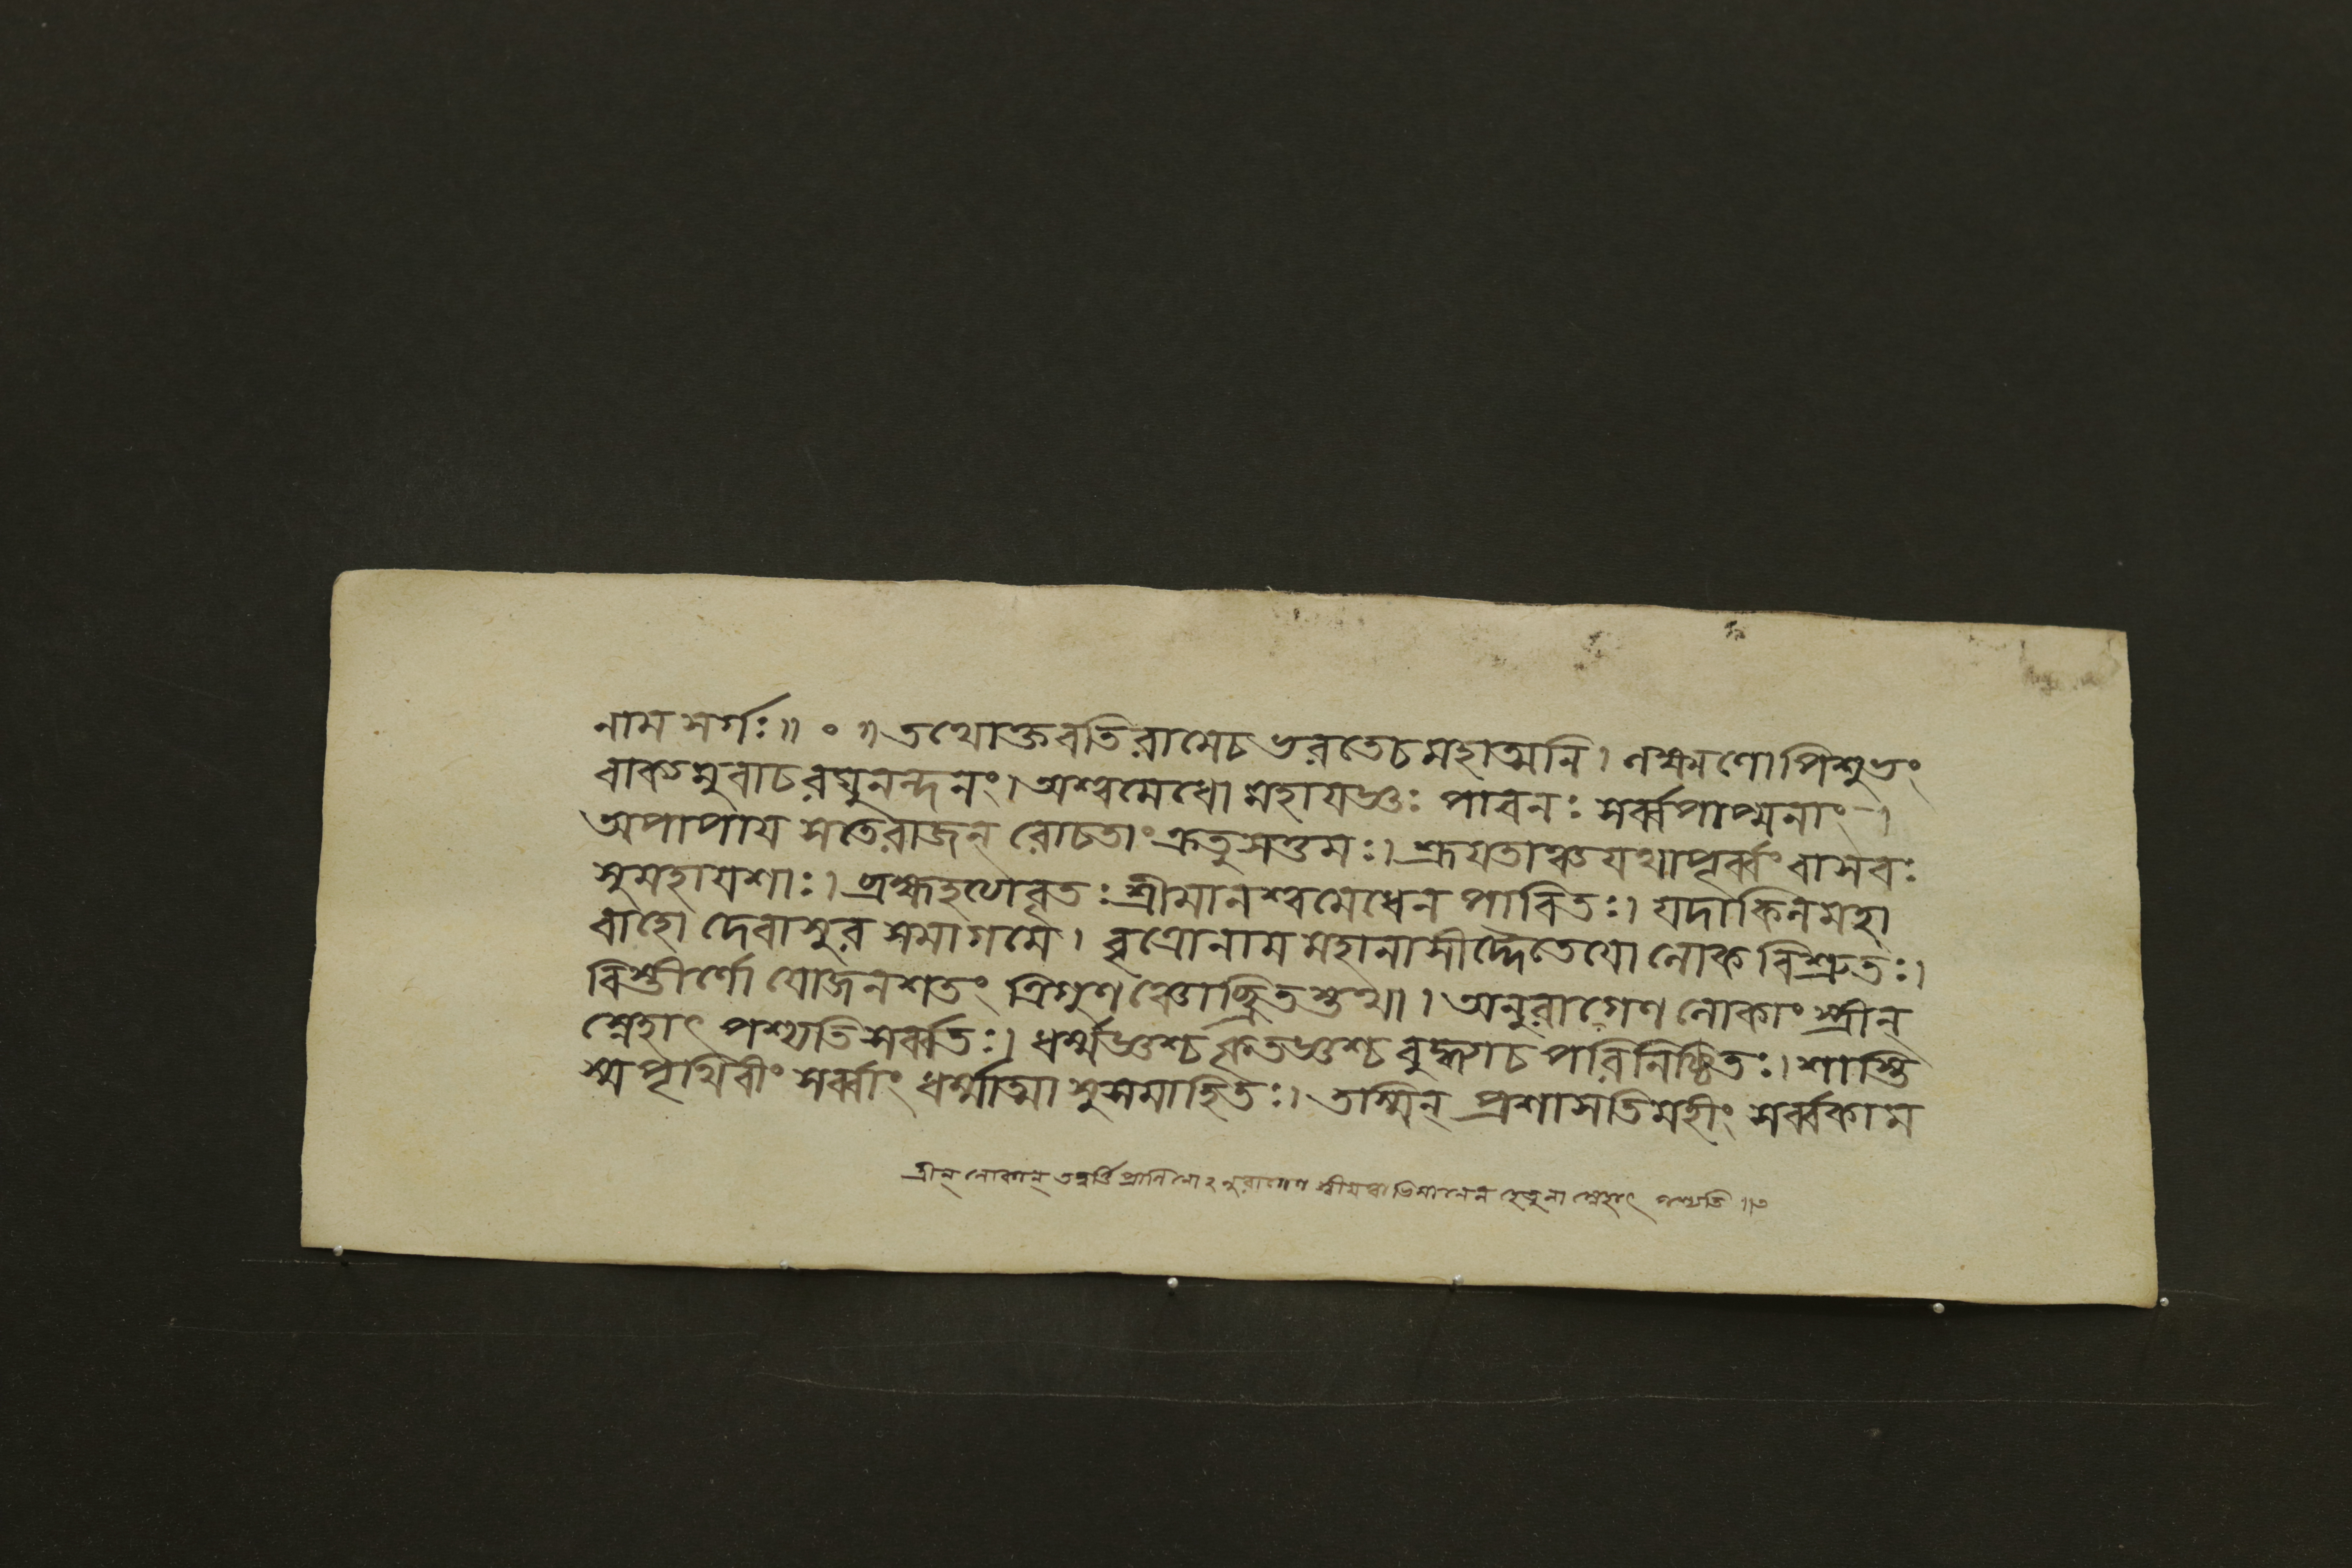 নাম সর্গঃ॥ ০ ॥ তথোক্তবতি রামেচ ভরতেচ মহাত্মনি। লক্ষ্মণোপি শুভং
বাক্যমুবাচ রঘুনন্দনং। অশ্বমেধো মহাযজ্ঞঃ পাবনঃ সর্ব্বপাপ্মনাং।
অপাপায সতেরাজন্ রোচতাং ক্রতুসত্তমঃ। শ্রূযতাঞ্চ যথাপূর্ব্বং বাসবঃ
সুমহাযশাঃ। ব্রহ্মহত্যাবৃতঃ শ্রীমানশ্বমেধেন পাবিতঃ। যদাকিল মহা
বাহো দেবাসুর সমাগমে। বৃত্রোনাম মহানাসীদ্দৈতেযো লোক বিশ্রুতঃ।
বিস্তীর্ণো যোজনশতং ত্রিগুণঞ্চোচ্ছ্রিতস্তথা। অনুরাগেণ লোকাং স্ত্রীন্
স্নেহাৎ পশ্যতি সর্ব্বতঃ। ধর্ম্মজ্ঞশ্চ কৃতজ্ঞশ্চ বুদ্ধ্যাচ পরিনিষ্ঠিতঃ। শাস্তি
স্ম পৃথিবীং সর্ব্বাং ধর্ম্মাত্মা সুসমাহিতঃ। তস্মিন্ প্রশাসতি মহীং সর্ব্বকাম
ত্রীন্ লোকান্ হেতুনা স্নেহাৎ পশ্যতি ॥